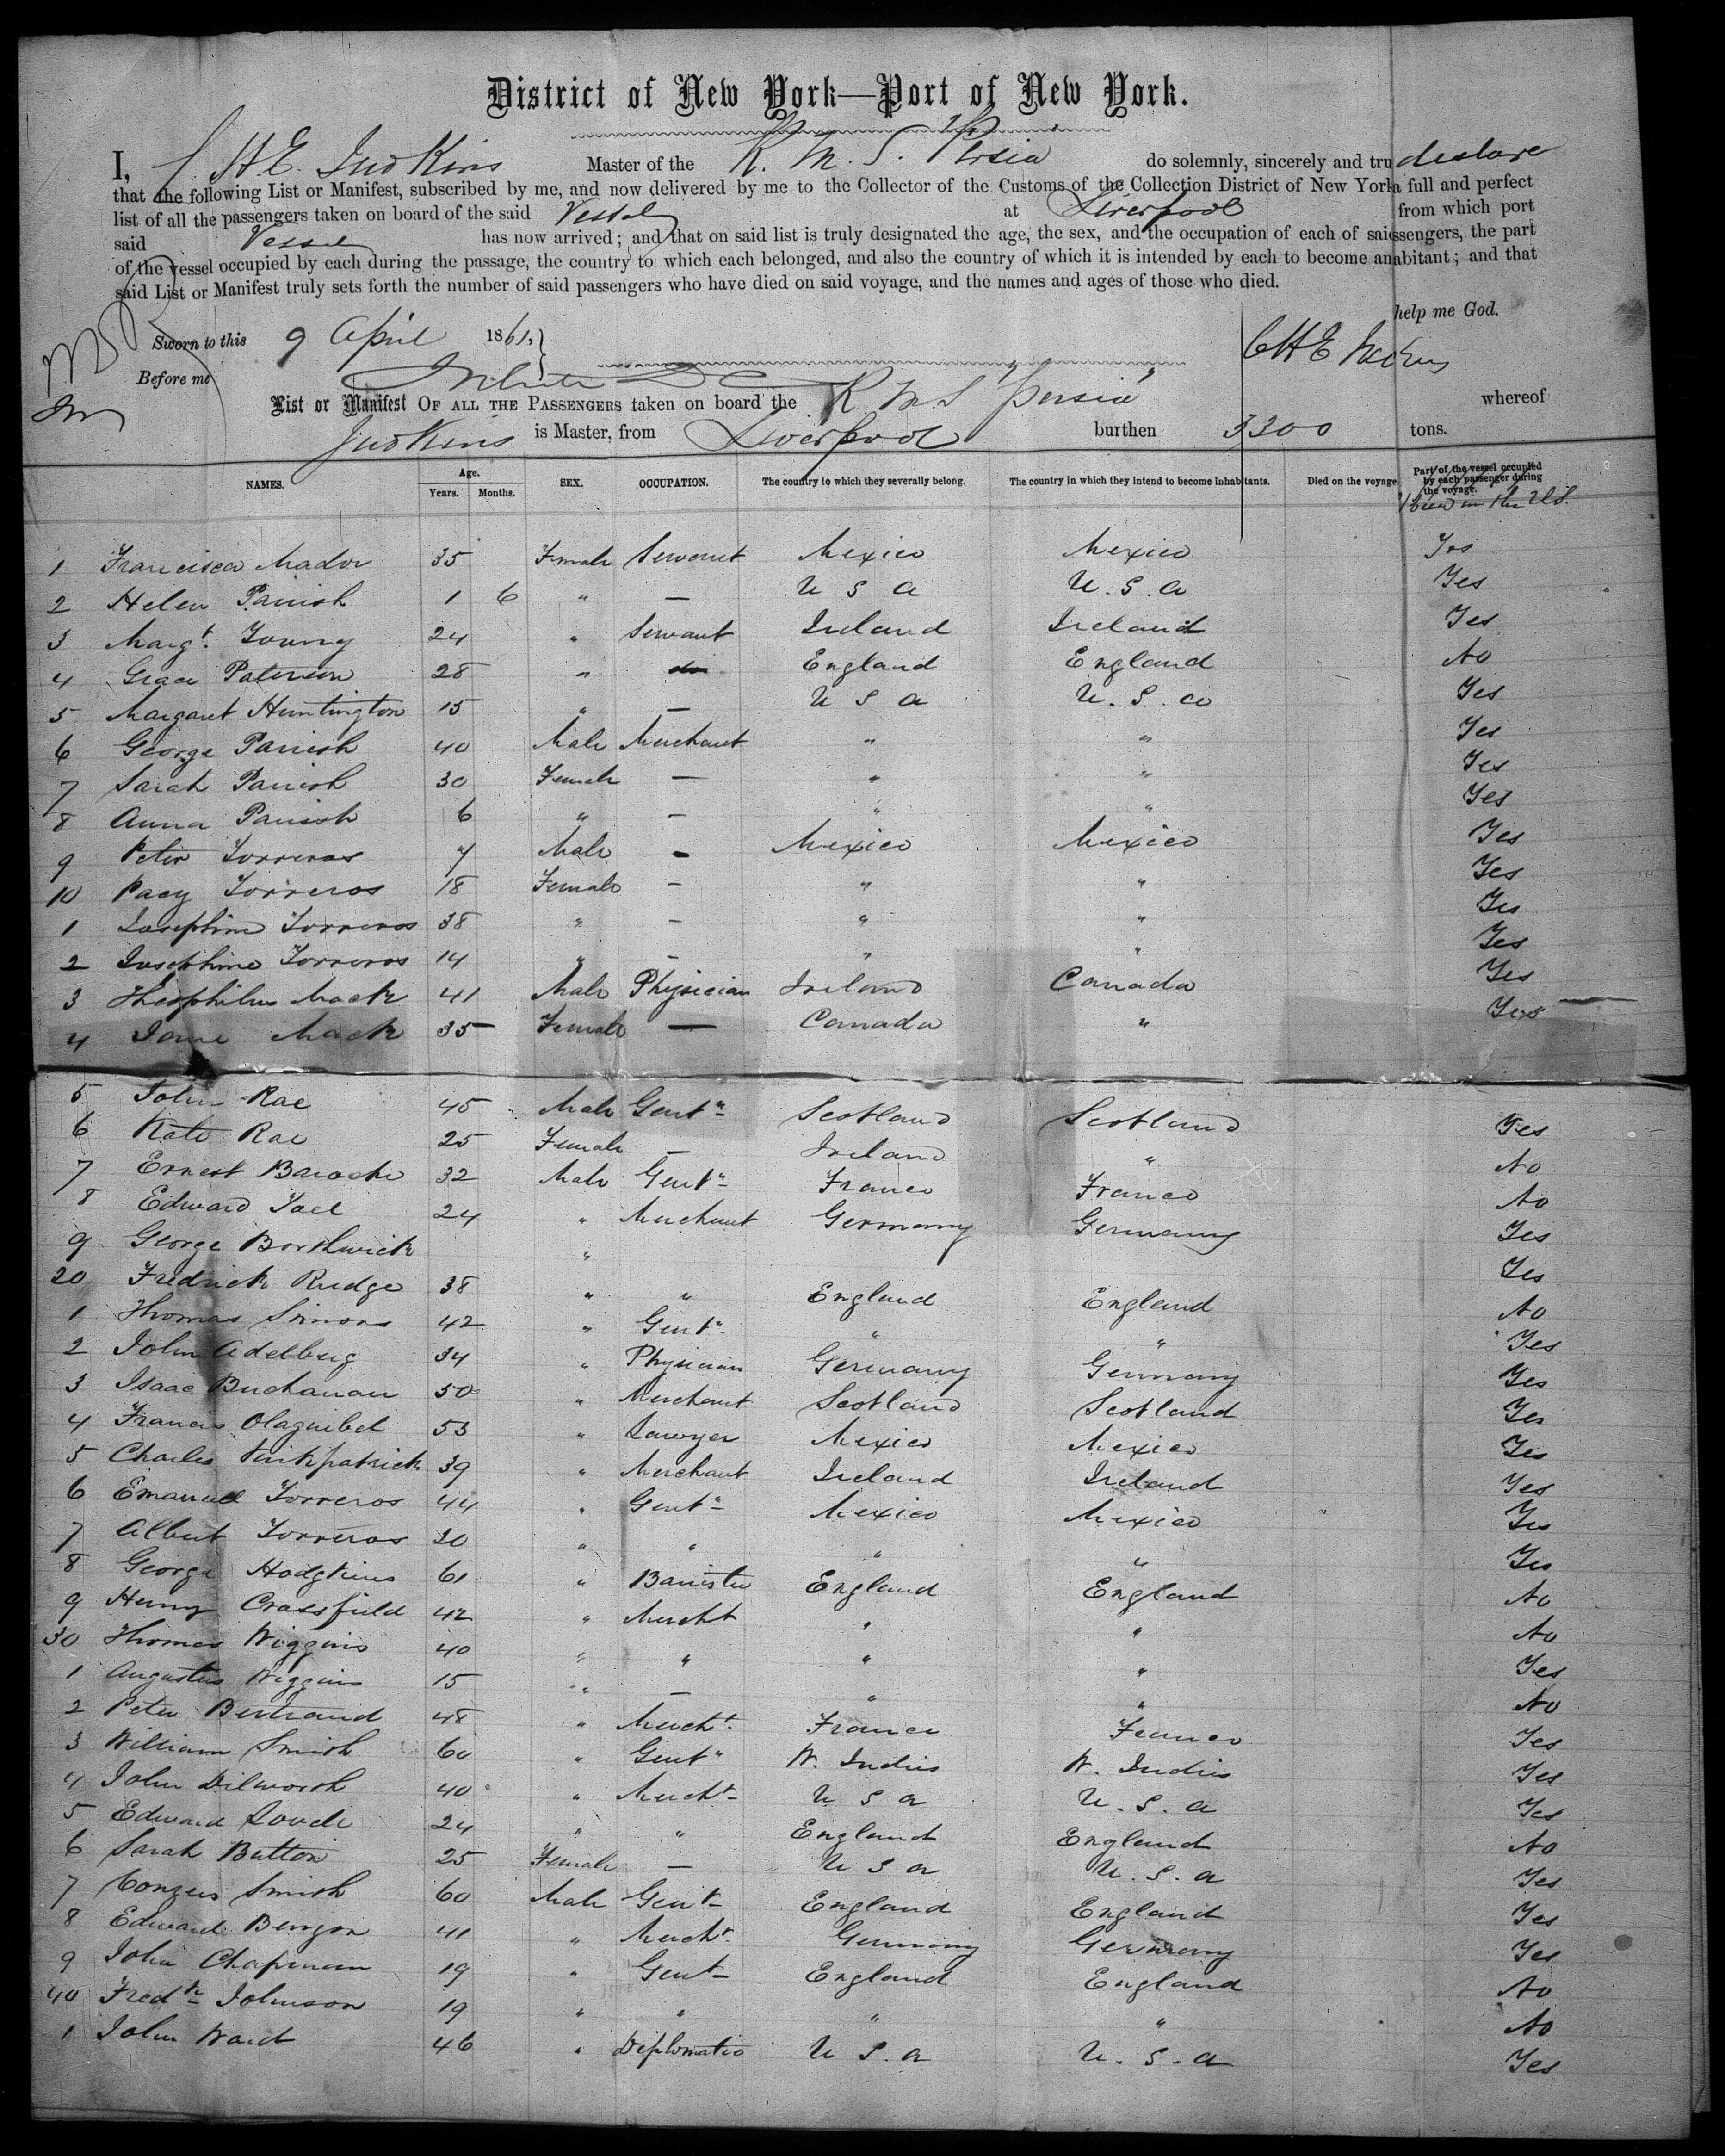 District of New York—Port of New York.
I, C. H. E. Judkins Master of the R. M. S. Persia do solemnly, sincerely and tru declare
that the following List or Manifest, subscribed by me, and now delivered by me to the Collector of the Customs of the Collection District of New York a full and perfect
list of all the passengers taken on board of the said Vessel at Liverpool from which port
said Vessel has now arrived; and that on said list is truly designated the age, the sex, and the occupation of each of said ssengers, the part
of the vessel occupied by each during the passage, the country to which each belonged, and also the country of which it is intended by each to become an abitant; and that
said List or Manifest truly sets forth the number of said passengers who have died on said voyage, and the names and ages of those who died.
help me God.
Sworn to this 9 April 1861, CHE Judkins
Before me
List or Manifest OF ALL THE PASSENGERS taken on board the R M S Persia whereof
Judkins is Master, from Liverpool burthen 3300 tons.
NAMES. Age. Years. Months. SEX. OCCUPATION. The country to which they severally belong. The country in which they intend to become inhabitants. Died on the voyage Part of the vessel occupied by each passenger during the voyage.
been in the U.S.
1 Francisca Mador 35 Female Servant Mexico Mexico Yes
2 Helen Parrish 1 6 " — U S A U. S. A Yes
3 Margt. Young 24 " Servant Ireland Ireland Yes
4 Grace Paterson 28 " do England England No
5 Margaret Huntington 15 " — U S A U. S. A Yes
6 George Parrish 40 Male Merchant " " Yes
7 Sarah Parrish 30 Female — " " Yes
8 Anna Parrish 6 " — " " Yes
9 Peter Torreros 7 Male — Mexico Mexico Yes
10 Pacy Torreros 18 Female — " " Yes
1 Josephine Torreros 38 " — " " Yes
2 Josephine Torreros 14 " — " " Yes
3 Theophilus Mack 41 Male Physician Ireland Canada Yes
4 Jane Mack 35 Female — Canada " Yes
5 John Rae 45 Male Gentn Scotland Scotland Yes
6 Kate Rae 25 Female — Ireland " No
7 Ernest Baroche 32 Male Gentn France France No
8 Edward Joel 24 " Merchant Germany Germany Yes
9 George Borthwick " Yes
20 Fredrick Rudge 38 " " England England No
1 Thomas Simons 42 " Gentn " " Yes
2 John Adelberg 34 " Physician Germany Germany Yes
3 Isaac Buchanan 50 " Merchant Scotland Scotland Yes
4 Francis Olaguibel 53 " Lawyer Mexico Mexico Yes
5 Charles Kirkpatrick 39 " Merchant Ireland Ireland Yes
6 Emanuel Torreros 44 " Gentn Mexico Mexico Yes
7 Albert Torreros 20 " " " " Yes
8 George Hodgkins 61 " Barrister England England No
9 Henry Crossfield 42 " Mercht " " No
30 Thomas Wiggins 40 " " " " Yes
1 Augustus Wiggins 15 " — " " No
2 Peter Bertrand 48 " Mercht. France France Yes
3 William Smith 60 " Gentn W. Indies W. Indies Yes
4 John Dilworth 40 " Mercht U S A U. S. A Yes
5 Edward 24 " " England England No
6 Sarah Button 25 Female — U S A U. S. A Yes
7 Conyers Smith 60 Male Gent England England Yes
8 Edward Benzon 41 " Mercht. Germany Germany Yes
9 John Chapman 19 " Gent England England No
40 Fredk Johnson 19 " " " " No
1 John Ward 46 " Diplomatic U S. A U. S. A Yes